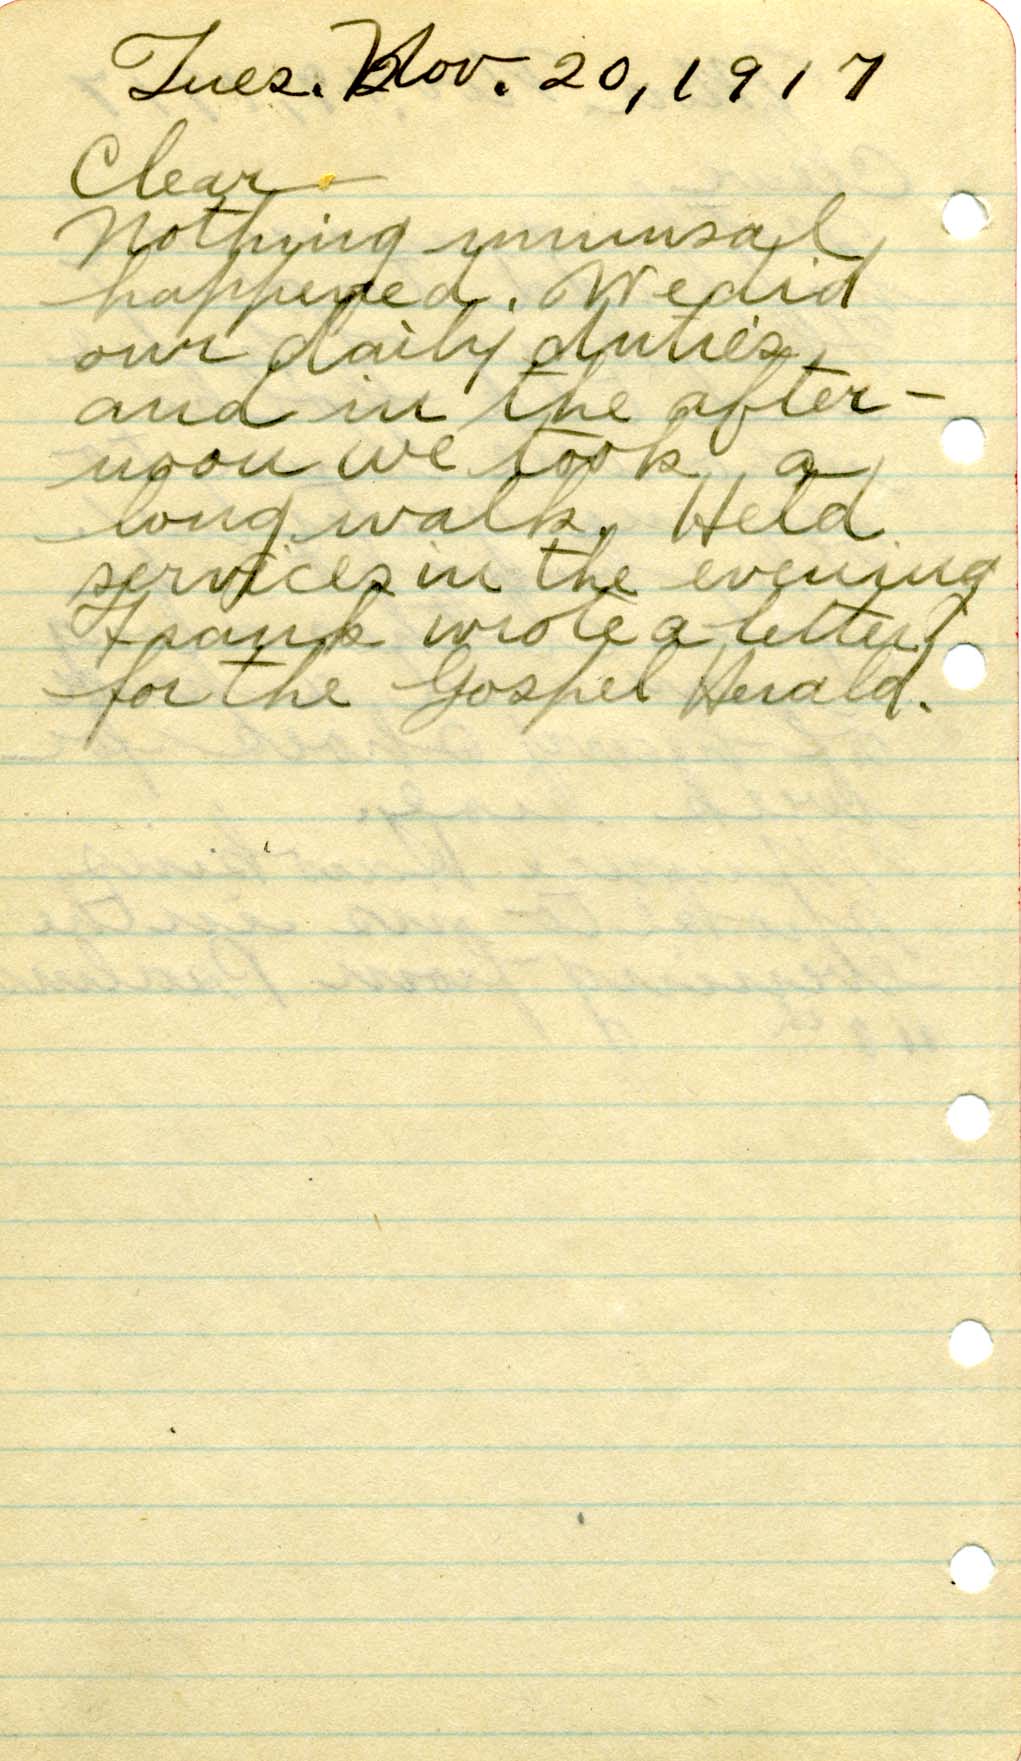 Tues. Nov. 20, 1917
Clear
Nothing unusual
happened. We did
our daily duties
and in the after-
noon we took a
long walk. Held
services in the evening
Frank wrote a letter
for the Gospel Herald.